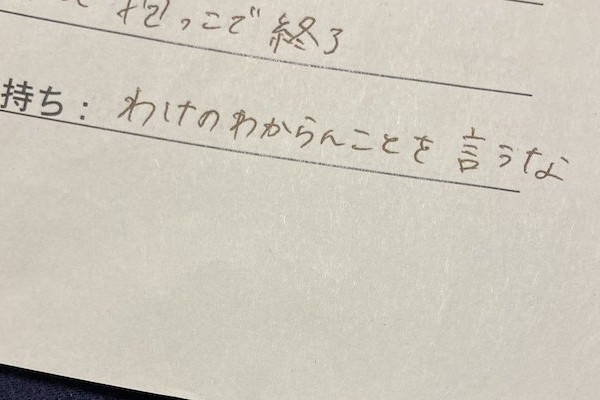 抱っこで終了
持ち：わけのわからんことを言うな